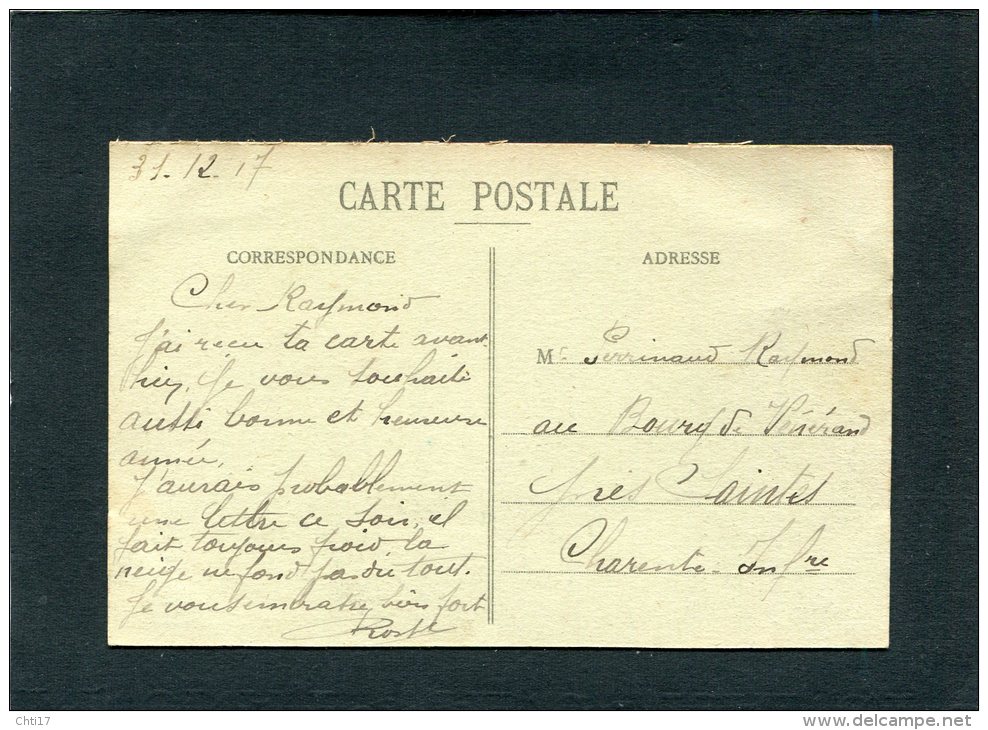 31.12.17
CARTE POSTALE
CORRESPONDANCE
Cher Raymond
J'ai recu ta carte avant
hier, Je vous souhaite
aussi bonne et heureuse
année,
J'aurais probablement
une lettre ce soir, il
fait toujours froid, la
neige ne fond pas du tout.
Je vous embrasse bien fort
ADRESSE
Mr Perrinaud Raymond
au Bourg de Vénérand
près Saintes
Charente-Infre
Chti17
www.delcampe.net